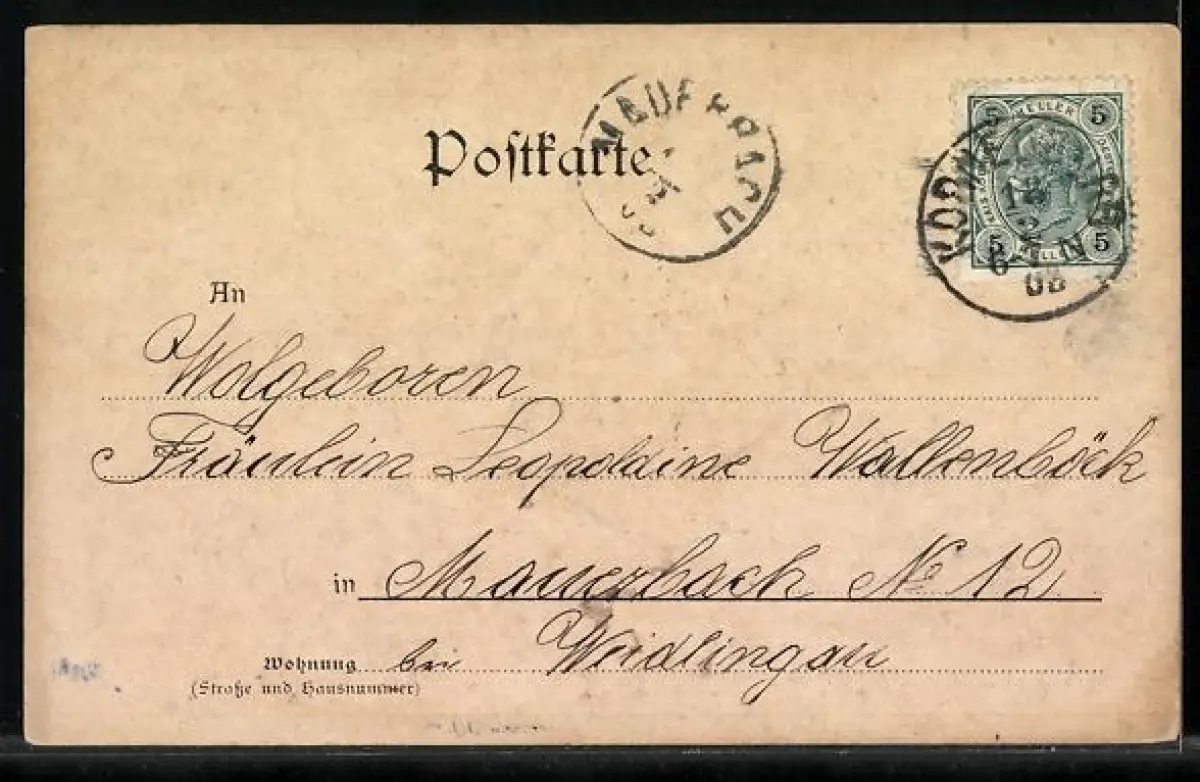 Postkarte
MAUERBACH
5 HELLER 5
5 5
08
An
Wolgeboren
Fräulein Leopoldine Wallenböck
in Mauerbach No 12
Wohnung bei Weidlingau
(Straße und Hausnummer)